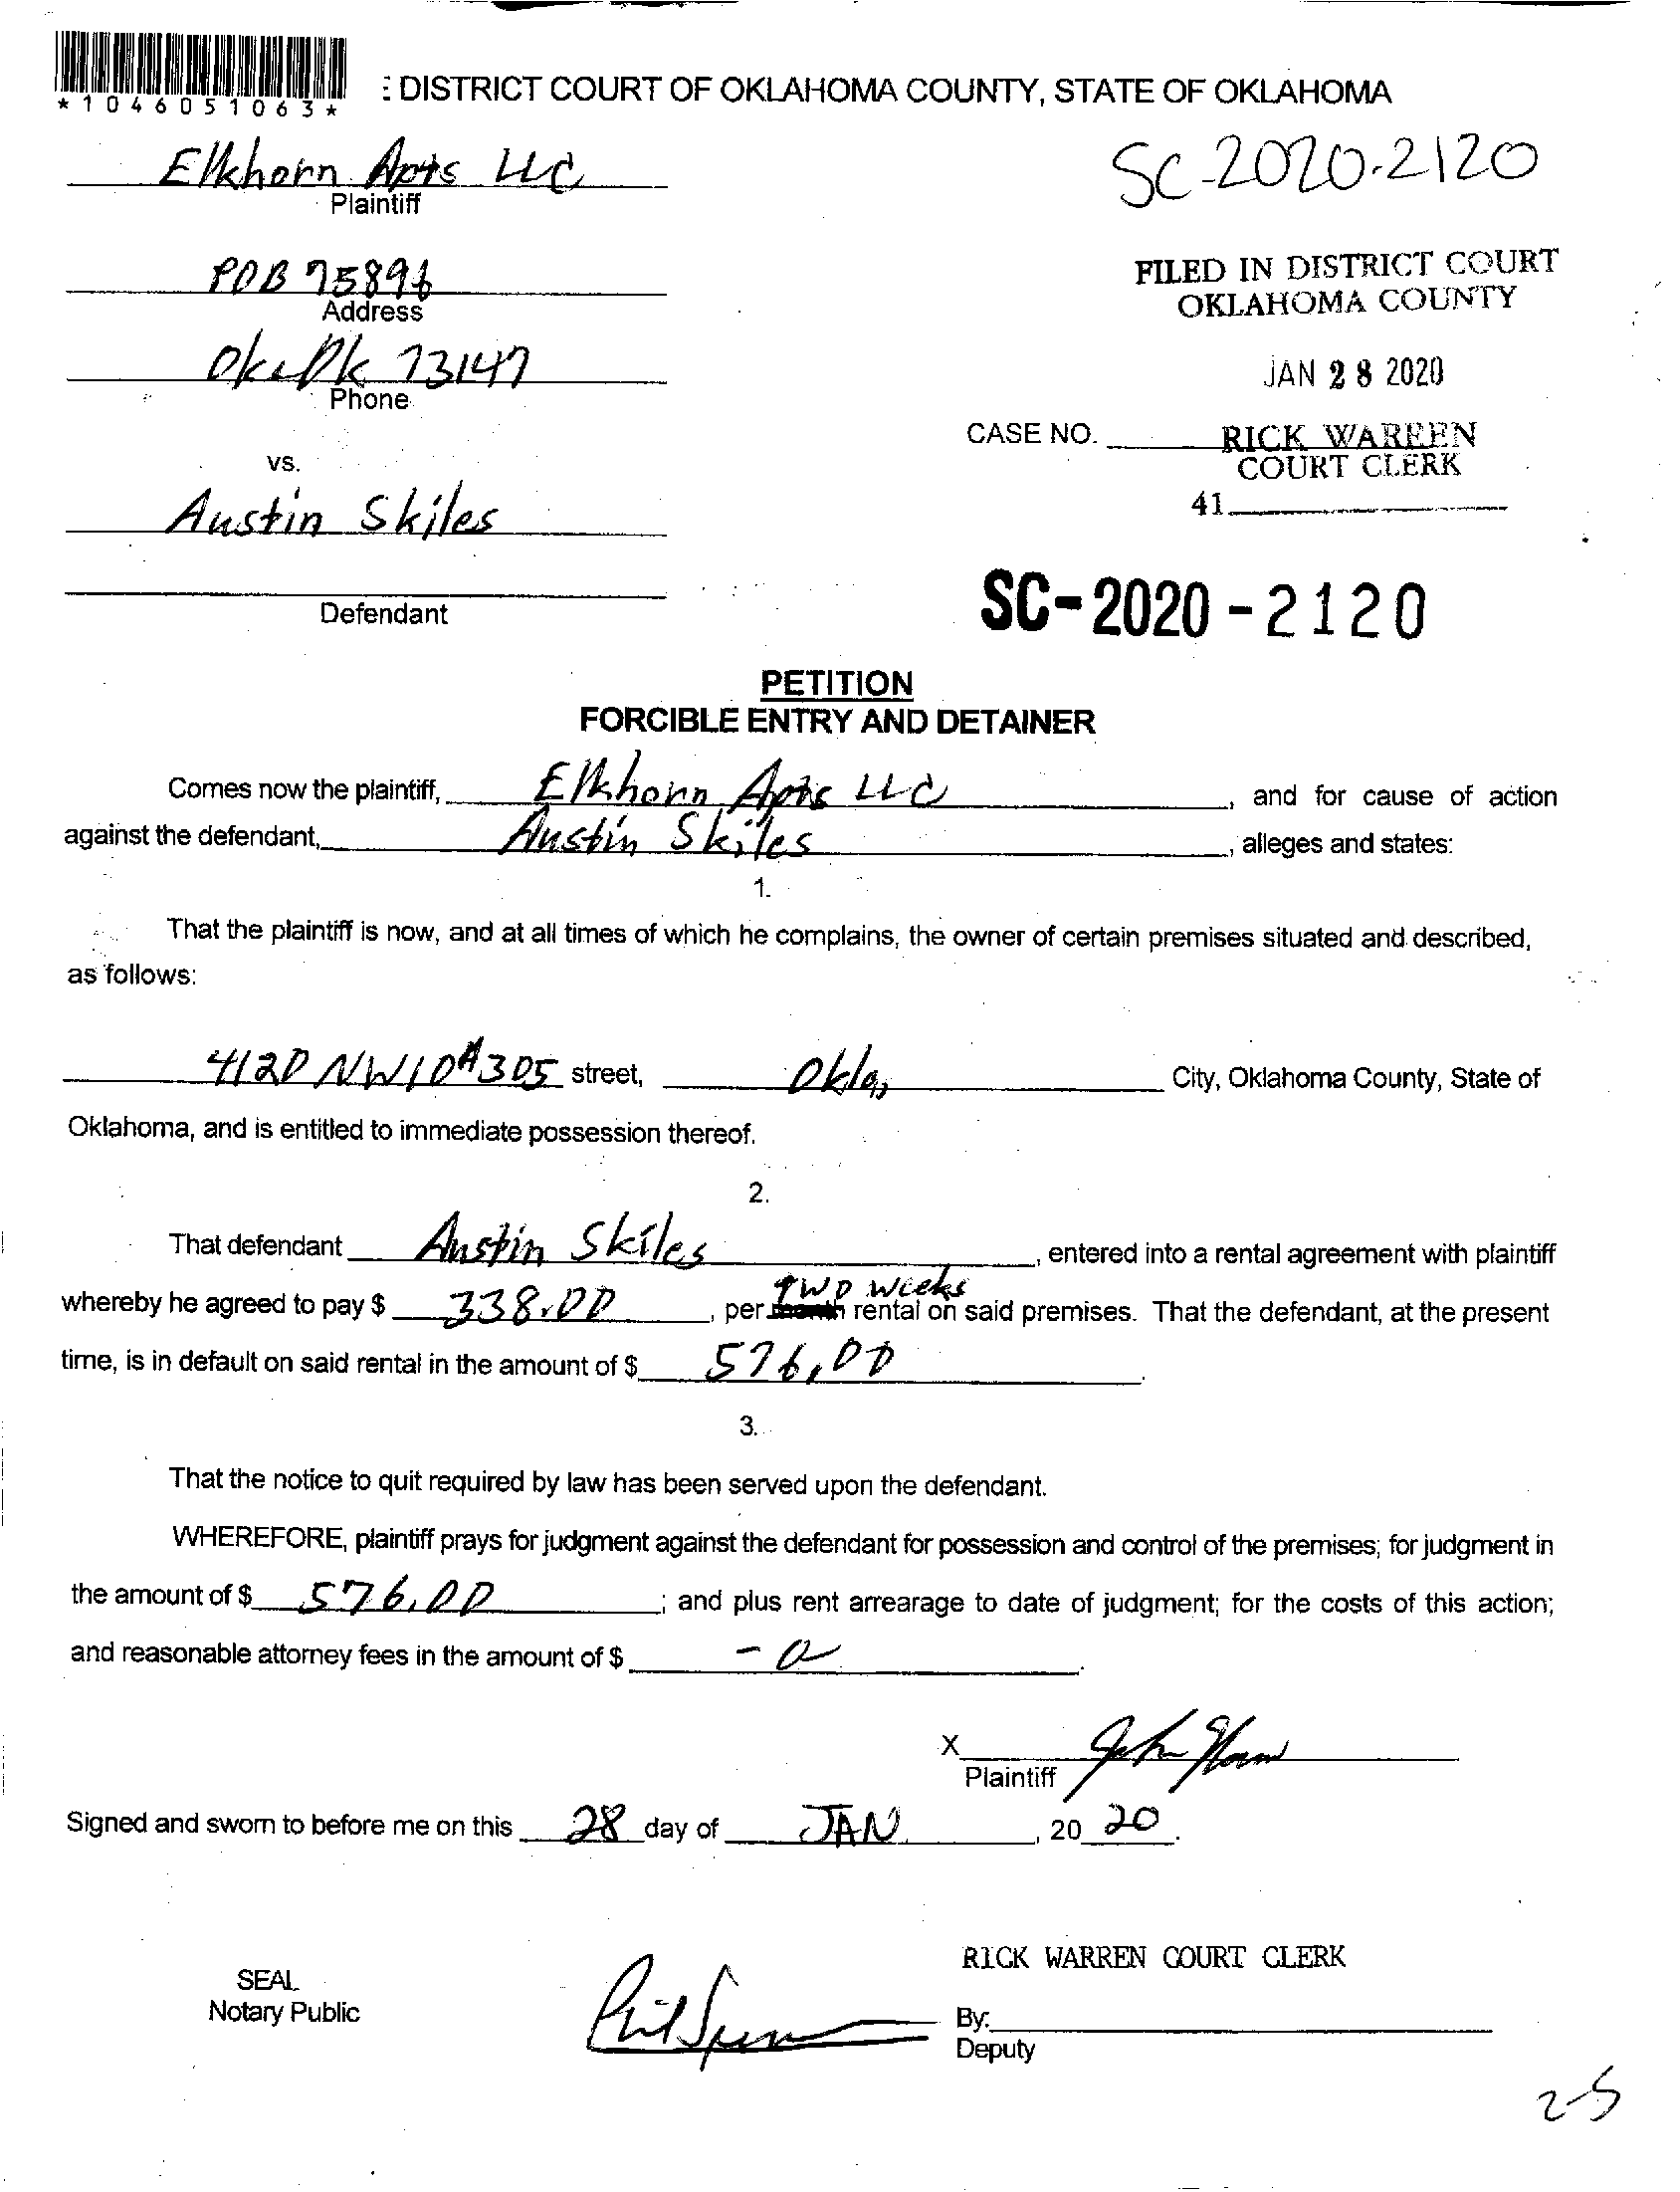 *1046051063*
: DISTRICT COURT OF OKLAHOMA COUNTY, STATE OF OKLAHOMA
Elkhorn Apts LLC
Plaintiff
SC-2020-2120
POB 75896
Address
FILED IN DISTRICT COURT
OKLAHOMA COUNTY
Ok 73147
Phone
JAN 28 2020
CASE NO.
RICK WARREN
COURT CLERK
41
vs.
Austin Skiles
Defendant
SC-2020-2120
PETITION
FORCIBLE ENTRY AND DETAINER
Comes now the plaintiff, Elkhorn Apts LLC, and for cause of action
against the defendant, Austin Skiles, alleges and states:
1.
That the plaintiff is now, and at all times of which he complains, the owner of certain premises situated and described,
as follows:
4120 NW 10 #305 street, Okla, City, Oklahoma County, State of
Oklahoma, and is entitled to immediate possession thereof.
2.
That defendant Austin Skiles, entered into a rental agreement with plaintiff
whereby he agreed to pay $ 338.00, per month two weeks rental on said premises. That the defendant, at the present
time, is in default on said rental in the amount of $ 576.00.
3.
That the notice to quit required by law has been served upon the defendant.
WHEREFORE, plaintiff prays for judgment against the defendant for possession and control of the premises; for judgment in
the amount of $ 576.00; and plus rent arrearage to date of judgment; for the costs of this action;
and reasonable attorney fees in the amount of $ -0.
X
Plaintiff
Signed and sworn to before me on this 28 day of JAN, 2020.
RICK WARREN COURT CLERK
SEAL
Notary Public
By:
Deputy
25